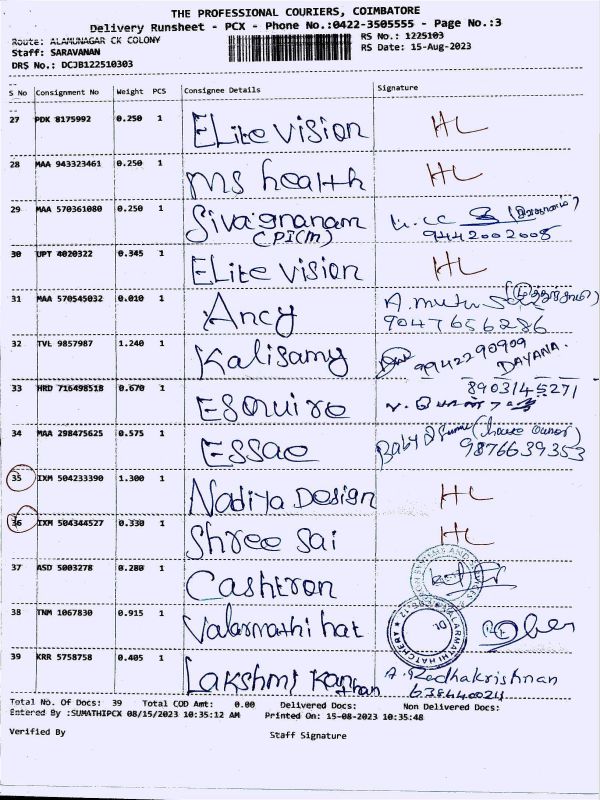 THE PROFESSIONAL COURIERS, COIMBATORE
Delivery Runsheet - PCX - Phone No.:0422-3505555 - Page No.:3
Route: ALAMUNAGAR CK COLONY
RS No.: 1225103
Staff: SARAVANAN
RS Date: 15-Aug-2023
DRS No.: DCJB122510303
S No Consignment No Weight PCS Consignee Details Signature
27 PDK 8175992 0.250 1 ELite vision HL
28 MAA 943323461 0.250 1 ms health HL
29 MAA 570361080 0.250 1 Sivagnanam
(PI(M) 9442002005
30 UPT 4020322 0.345 1 ELite vision HL
31 MAA 570545032 0.010 1 Ancy A. Mutu
9047656286
32 TVL 9857987 1.240 1 Kalisamy 9942290909
DAYANA.
33 HRD 716498518 0.670 1 Esquire 8903145271
34 MAA 298475625 0.575 1 Essae Baby (house owner)
9876639353
35 IXM 504233390 1.300 1 Nadiya Design HL
36 IXM 504344527 0.330 1 Shree Sai HL
37 ASD 5003278 0.280 1 Cashtron
38 TNM 1067830 0.915 1 Valarmathi hat
VALARMATHI HATCHERY
39 KRR 5758758 0.405 1 Lakshmi Kanthan A. Radhakrishnan
Total No. Of Docs: 39 Total COD Amt: 0.00 Delivered Docs: Non Delivered Docs:
Entered By :SUMATHIPCX 08/15/2023 10:35:12 AM Printed On: 15-08-2023 10:35:48
Verified By Staff Signature